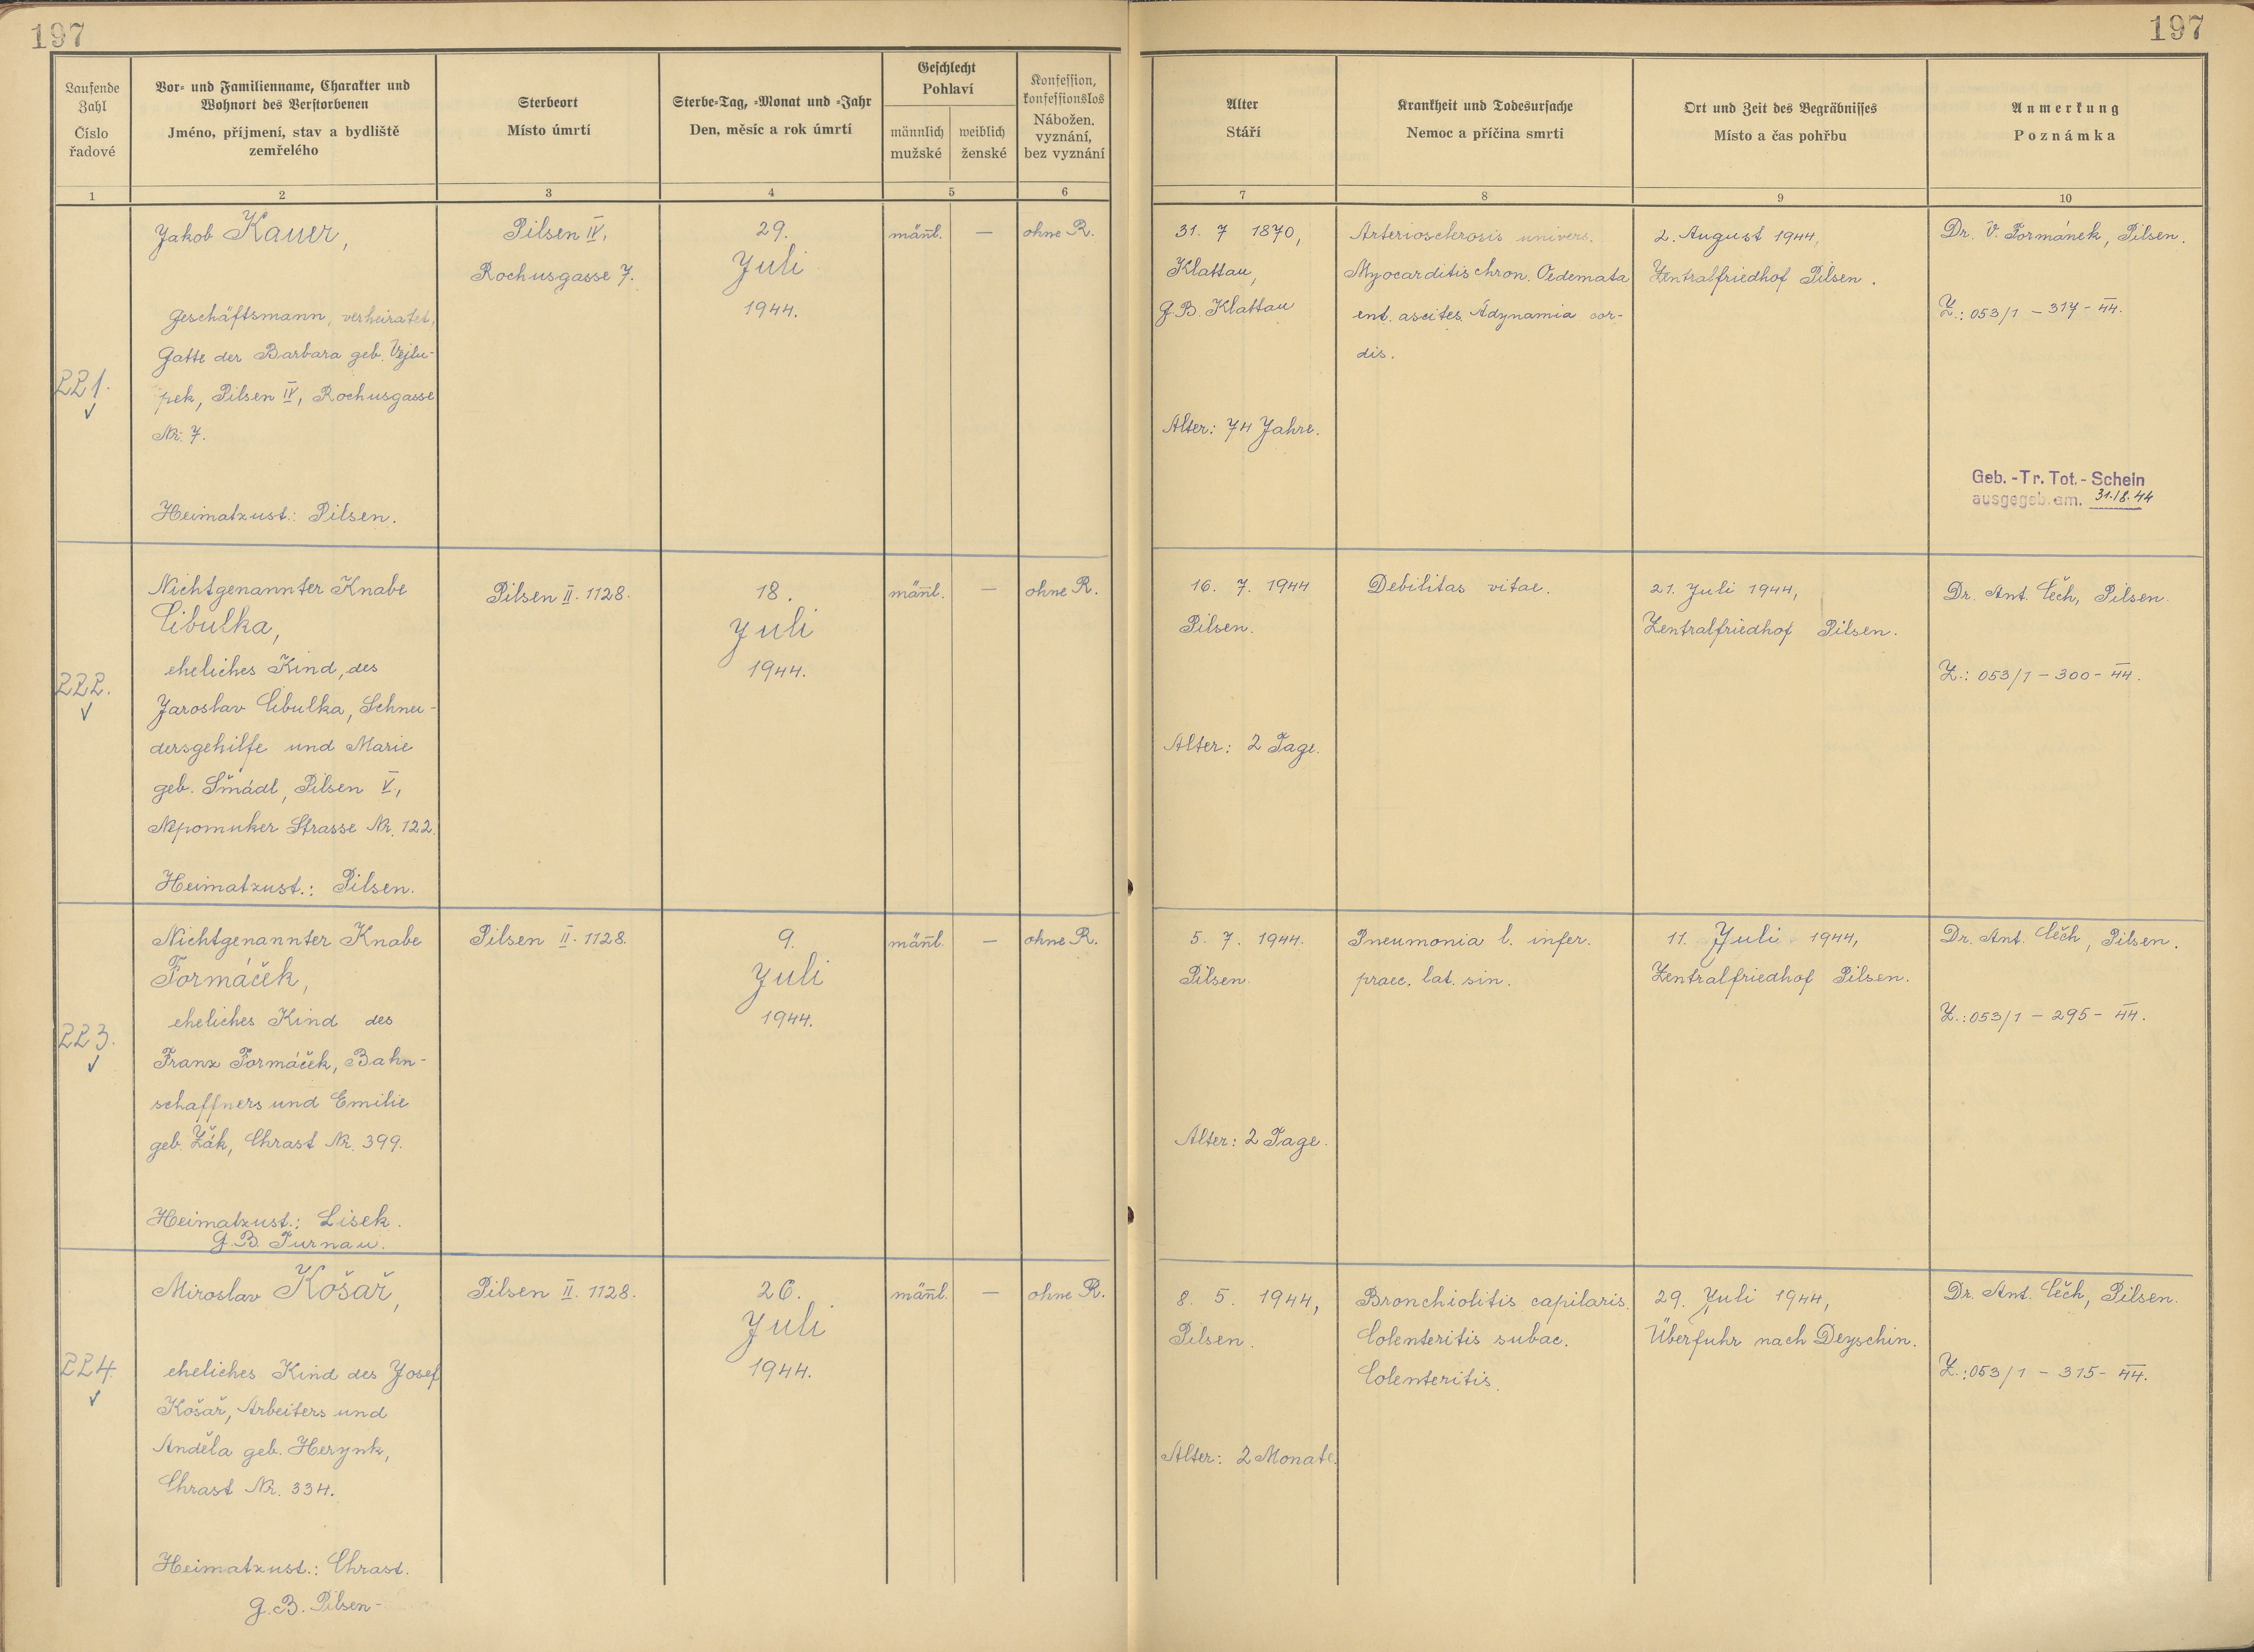 197
197
Laufende
Zahl
Číslo
řadové
Vor- und Familienname, Charakter und
Wohnort des Verstorbenen
Jméno, příjmení, stav a bydliště
zemřelého
Sterbeort
Místo úmrtí
Sterbe-Tag, -Monat und -Jahr
Den, měsíc a rok úmrtí
Geschlecht
Pohlaví
männlich
mužské
weiblich
ženské
Konfession,
konfessionslos
Nábožen.
vyznání,
bez vyznání
Alter
Stáří
Krankheit und Todesursache
Nemoc a příčina smrti
Ort und Zeit des Begräbnisses
Místo a čas pohřbu
Anmerkung
Poznámka
1
2
3
4
5
6
7
8
9
10
221.
Jakob Kauer,
Geschäftsmann, verheiratet,
Gatte der Barbara geb. Vejlu-
pek, Pilsen IV, Rochusgasse
Nr. 7.
Heimatzust.: Pilsen.
Pilsen IV,
Rochusgasse 7.
29.
Juli
1944.
männl.
—
ohne R.
31. 7 1870,
Klattau,
G.B. Klattau
Alter: 74 Jahre.
Arteriosclerosis univers.
Myocarditis chron. Oedemata
ent. ascites. Adynamia cor-
dis.
2. August 1944,
Zentralfriedhof Pilsen.
Dr. V. Formánek, Pilsen.
Z.: 053/1 - 317 - 44.
Geb. -Tr. Tot. - Schein
ausgegeb. am. 31.8.44
222.
Nichtgenannter Knabe
Cibulka,
eheliches Kind, des
Jaroslav Cibulka, Schnei-
dersgehilfe und Marie
geb. Šmádl, Pilsen V,
Nepomuker Strasse Nr. 122.
Heimatzust.: Pilsen.
Pilsen II. 1128.
18.
Juli
1944.
männl.
—
ohne R.
16. 7. 1944
Pilsen.
Alter: 2 Tage.
Debilitas vitae.
21. Juli 1944,
Zentralfriedhof Pilsen.
Dr. Ant. Čech, Pilsen.
Z.: 053/1 - 300 - 44.
223.
Nichtgenannter Knabe
Formáček,
eheliches Kind des
Franz Formáček, Bahn-
schaffners und Emilie
geb. Žák, Chrast Nr. 399.
Heimatzust.: Lisek.
G.B. Turnau.
Pilsen II. 1128.
9.
Juli
1944.
männl.
—
ohne R.
5. 7. 1944.
Pilsen
Alter: 2 Tage.
Pneumonia l. infer.
praec. lat. sin.
11. Juli 1944,
Zentralfriedhof Pilsen.
Dr. Ant. Čech, Pilsen.
Z.: 053/1 - 295 - 44.
224.
Miroslav Košař,
eheliches Kind des Josef
Košař, Arbeiters und
Anděla geb. Herynk,
Chrast Nr. 334.
Heimatzust.: Chrast.
G.B. Pilsen-
Pilsen II. 1128.
26.
Juli
1944.
männl.
—
ohne R.
8. 5. 1944,
Pilsen.
Alter: 2 Monate.
Bronchiolitis capilaris.
Colenteritis subac.
Colenteritis.
29. Juli 1944,
Überfuhr nach Deyschin.
Dr. Ant. Čech, Pilsen.
Z.: 053/1 - 315 - 44.